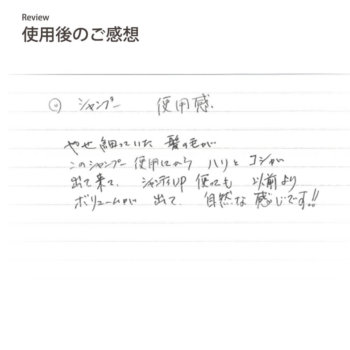 Review
使用後のご感想
シャンプー 使用感.
やせ細っていた 髪の毛が
このシャンプー 使用してから ハリと コシが
出て来て、 シャンティUP 使っても 以前より
ボリュームが 出て 自然な感じです!!